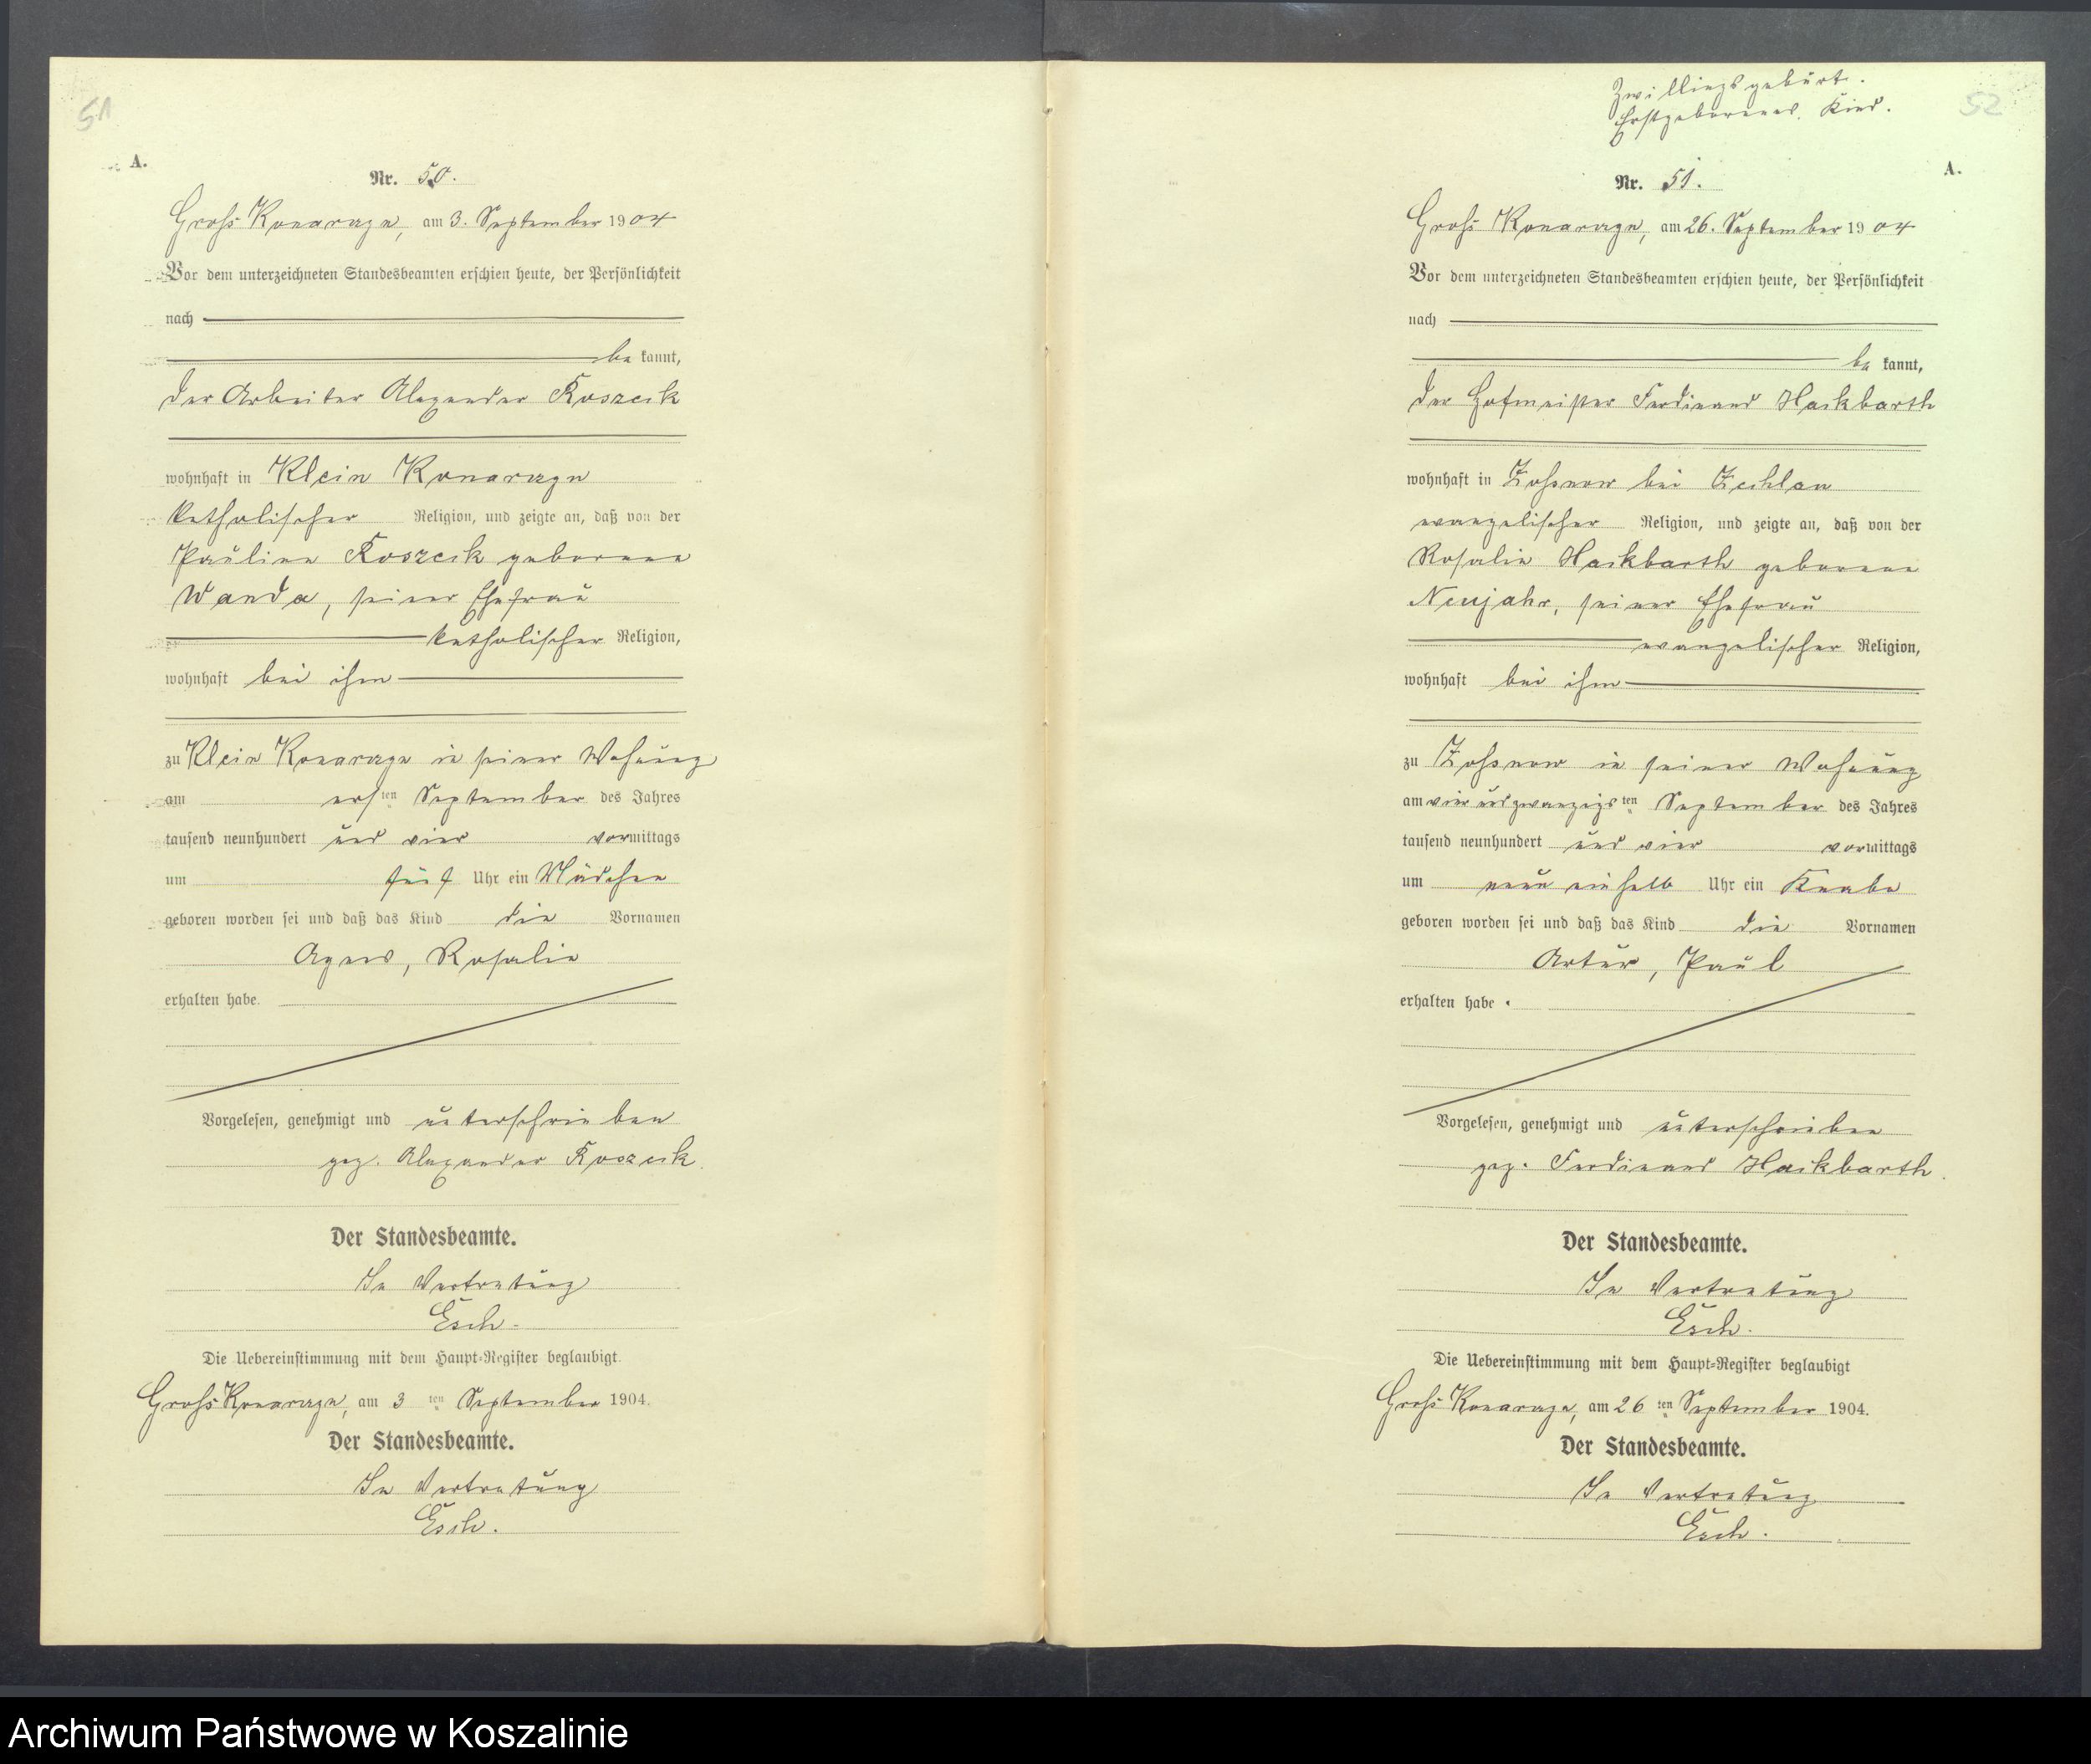 51
A.
Nr. 50.
Gross Konarczyn, am 3. September 1904
Vor dem unterzeichneten Standesbeamten erschien heute, der Persönlichkeit
nach
be kannt,
der Arbeiter Alexander Koszcik
wohnhaft in Klein Konarczyn
katholischer Religion, und zeigte an, daß von der
Pauline Koszcik geborene
Wanda, seiner Ehefrau
katholischer Religion,
wohnhaft bei ihm
zu Klein Konarczyn in seiner Wohnung
am ersten September des Jahres
tausend neunhundert und vier vormittags
um fünf Uhr ein Mädchen
geboren worden sei und daß das Kind die Vornamen
Agnes, Rosalie
erhalten habe.
Vorgelesen, genehmigt und unterschrieben
gez. Alexander Koszcik.
Der Standesbeamte.
In Vertretung
Esch.
Die Uebereinstimmung mit dem Haupt-Register beglaubigt.
Gross Konarczyn, am 3 ten September 1904.
Der Standesbeamte.
In Vertretung
Esch.
Zwillingsgeburt.
Erstgeborenes Kind.
52
A.
Nr. 51.
Gross Konarczyn, am 26. September 1904
Vor dem unterzeichneten Standesbeamten erschien heute, der Persönlichkeit
nach
be kannt,
der Hofmeister Ferdinand Hackbarth
wohnhaft in Zossnow bei Zechlau
evangelischer Religion, und zeigte an, daß von der
Rosalie Hackbarth geborene
Neujahr, seiner Ehefrau
evangelischer Religion,
wohnhaft bei ihm
zu Zossnow in seiner Wohnung
am vierundzwanzigsten September des Jahres
tausend neunhundert und vier vormittags
um neun einhalb Uhr ein Knabe
geboren worden sei und daß das Kind die Vornamen
Artur, Paul
erhalten habe.
Vorgelesen, genehmigt und unterschrieben
gez. Ferdinand Hackbarth.
Der Standesbeamte.
In Vertretung
Esch.
Die Uebereinstimmung mit dem Haupt-Register beglaubigt
Gross Konarczyn, am 26 ten September 1904.
Der Standesbeamte.
In Vertretung
Esch.
Archiwum Państwowe w Koszalinie